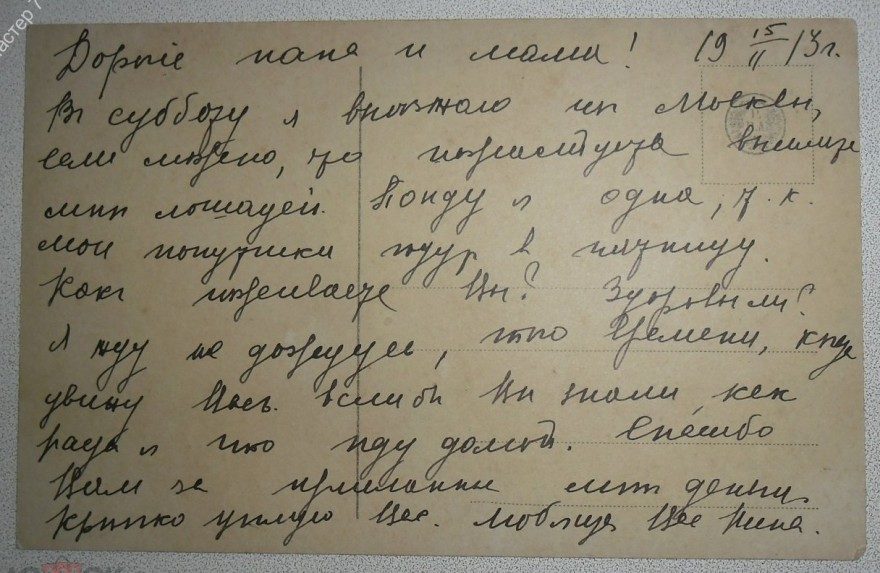 Дорогіе папа и мама! 19 15/II 13 г.
Въ субботу я выѣзжаю изъ Москвы,
если можно, то пожалуйста вышлите
мнѣ лошадей. Поѣду я одна, т. к.
мои попутчики ѣдутъ в пятницу.
Какъ поживаете Вы? Здоровы ли?
Я жду не дождусь, того времени, когда
увижу Васъ. Если бъ Вы знали, какъ
рада я что ѣду домой. Спасибо
Вамъ за присланныя мнѣ деньги.
Крѣпко цѣлую Вас. Любящая Вас Нина.